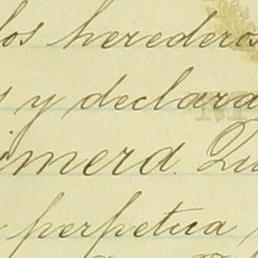 los herederos
y declara
imera. Qu
perpetua